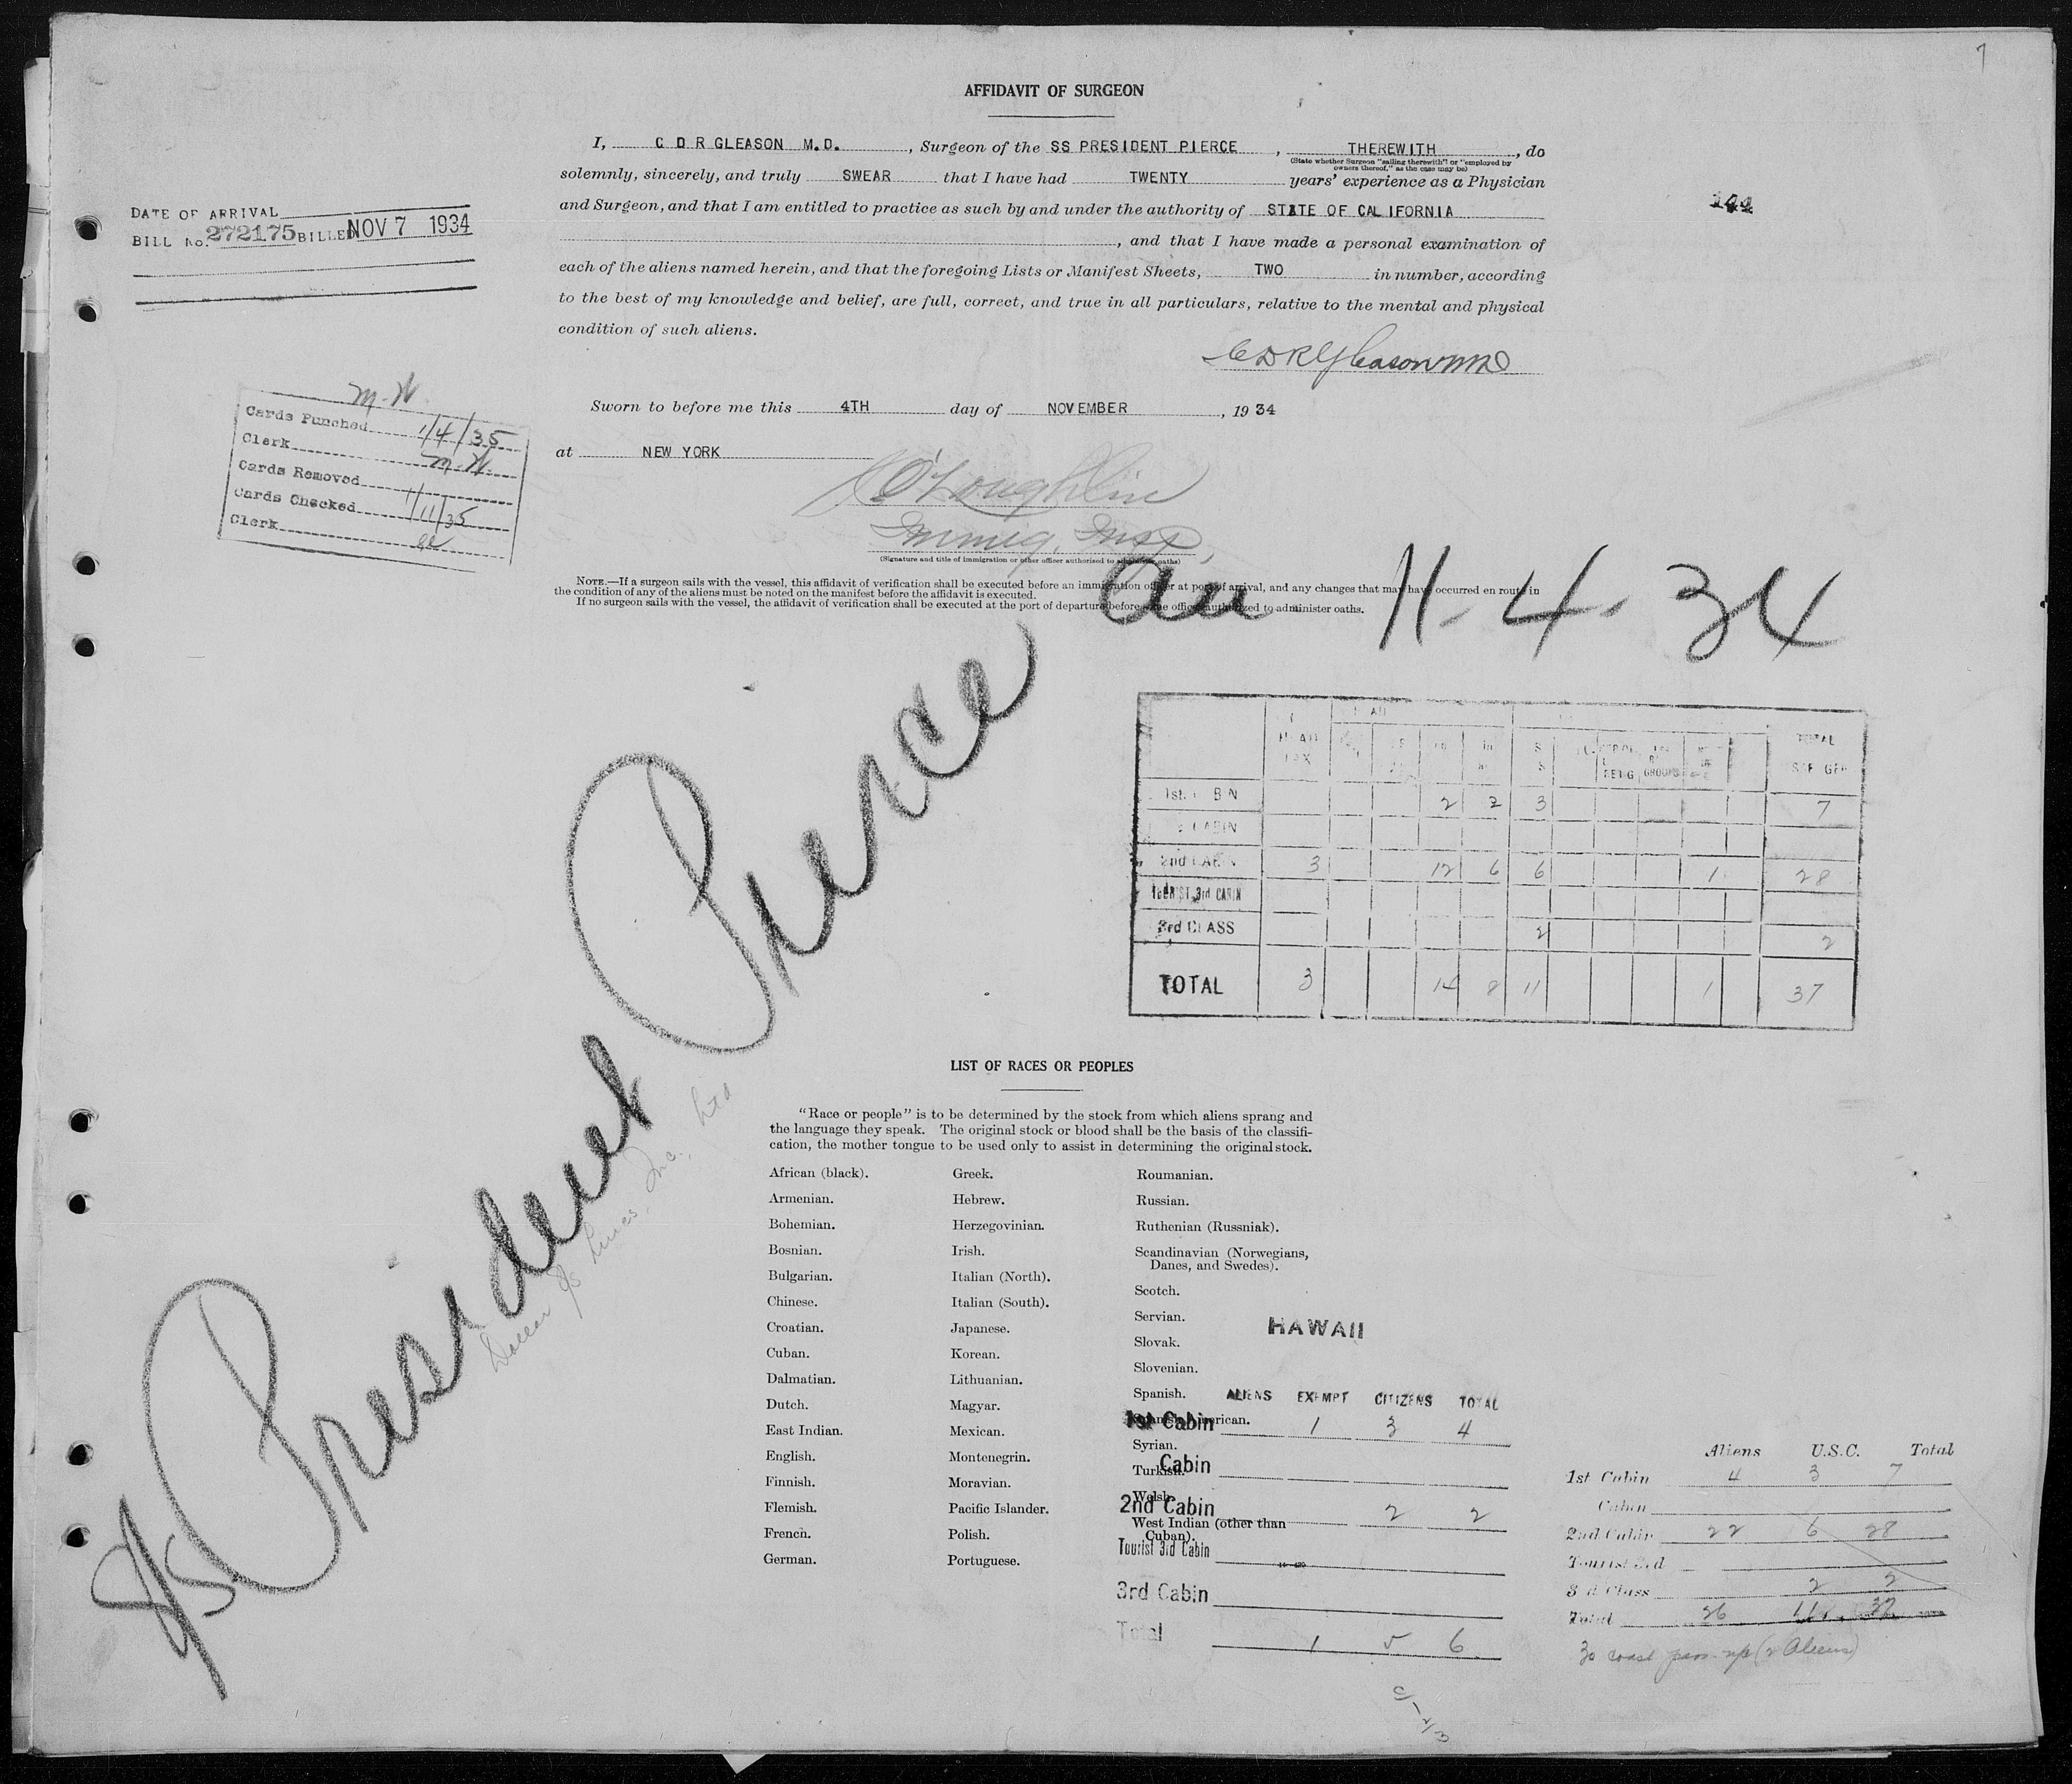 7
AFFIDAVIT OF SURGEON
I, C D R GLEASON M.D. , Surgeon of the SS PRESIDENT PIERCE , THEREWITH , do
(State whether Surgeon "sailing therewith" or "employed by
owners thereof," as the case may be)
solemnly, sincerely, and truly SWEAR that I have had TWENTY years' experience as a Physician
and Surgeon, and that I am entitled to practice as such by and under the authority of STATE OF CALIFORNIA
, and that I have made a personal examination of
each of the aliens named herein, and that the foregoing Lists or Manifest Sheets, TWO in number, according
to the best of my knowledge and belief, are full, correct, and true in all particulars, relative to the mental and physical
condition of such aliens.
CDR Gleason MD
Sworn to before me this 4TH day of NOVEMBER , 19 34
at NEW YORK
O'Loughlin
Immig. Insp.
(Signature and title of immigration or other officer authorized to administer oaths)
NOTE.—If a surgeon sails with the vessel, this affidavit of verification shall be executed before an immigration officer at port of arrival, and any changes that may have occurred en route in
the condition of any of the aliens must be noted on the manifest before the affidavit is executed.
If no surgeon sails with the vessel, the affidavit of verification shall be executed at the port of departure before some officer authorized to administer oaths.
DATE OF ARRIVAL
BILL No. 272175 BILLED NOV 7 1934
M.W.
Cards Punched 1/4/35
Clerk M.W.
Cards Removed
Cards Checked 1/11/35
Clerk
S/S President Pierce
Arr 11-4-34
Dollar S/S Lines, Inc., Ltd
HEAD TAX
TOTAL
1st CABIN 2 2 3 7
CABIN
2nd CABIN 3 12 6 6 1 28
TOURIST 3rd CABIN
3rd CLASS 2 2
TOTAL 3 14 8 11 1 37
LIST OF RACES OR PEOPLES
"Race or people" is to be determined by the stock from which aliens sprang and
the language they speak. The original stock or blood shall be the basis of the classifi-
cation, the mother tongue to be used only to assist in determining the original stock.
African (black).
Armenian.
Bohemian.
Bosnian.
Bulgarian.
Chinese.
Croatian.
Cuban.
Dalmatian.
Dutch.
East Indian.
English.
Finnish.
Flemish.
French.
German.
Greek.
Hebrew.
Herzegovinian.
Irish.
Italian (North).
Italian (South).
Japanese.
Korean.
Lithuanian.
Magyar.
Mexican.
Montenegrin.
Moravian.
Pacific Islander.
Polish.
Portuguese.
Roumanian.
Russian.
Ruthenian (Russniak).
Scandinavian (Norwegians,
Danes, and Swedes).
Scotch.
Servian.
Slovak.
Slovenian.
Spanish.
Spanish American.
Syrian.
Turkish.
Welsh.
West Indian (other than
Cuban).
HAWAII
ALIENS EXEMPT CITIZENS TOTAL
1st Cabin 1 3 4
Cabin
2nd Cabin 2 2
Tourist 3rd Cabin
3rd Cabin
Total 1 5 6
Aliens U.S.C. Total
1st Cabin 4 3 7
Cabin
2nd Cabin 22 6 28
Tourist 3rd
3rd Class 2 2
Total 26 11 37